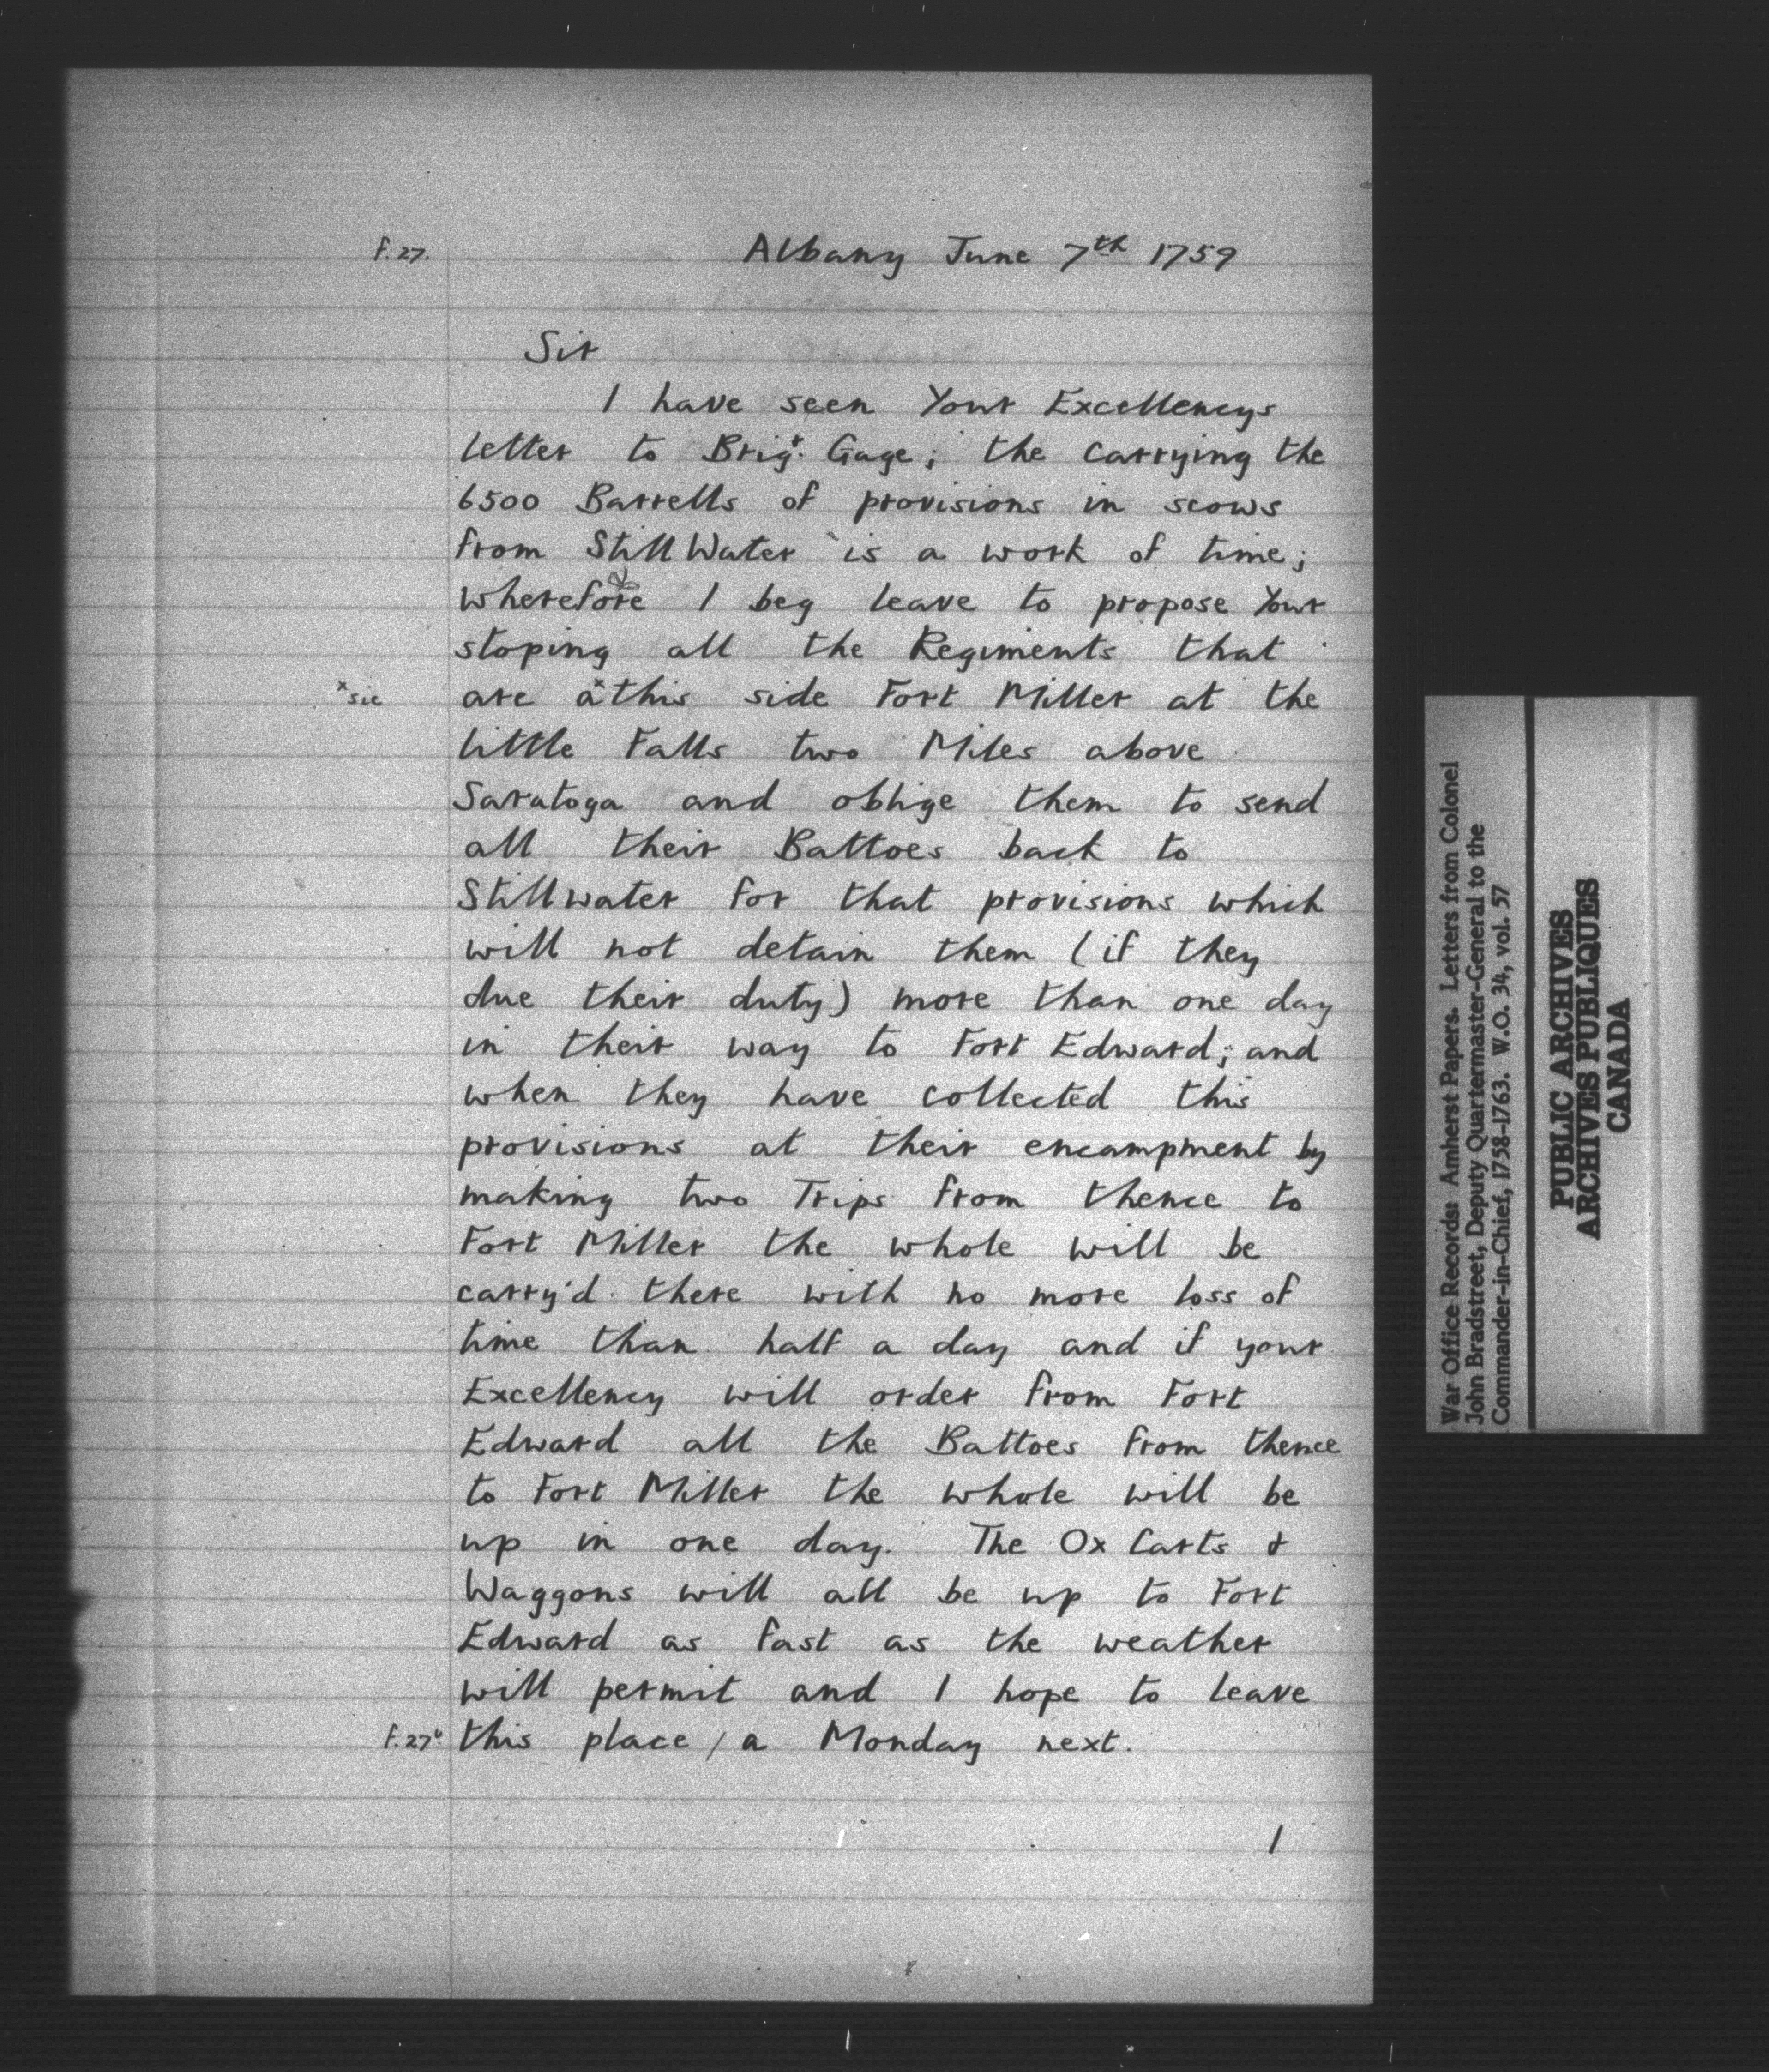 f.27.
Albany June 7th 1759
Sir
I have seen Your Excellencys
letter to Brigr. Gage; the carrying the
6500 Barrells of provisions in scows
from Still Water is a work of time;
wherefore I beg leave to propose Your
stoping all the Regiments that
x sic are a x this side Fort Miller at the
little Falls two Miles above
Saratoga and oblige them to send
all their Battoes back to
Stillwater for that provisions which
will not detain them (if they
due their duty) more than one day
in their way to Fort Edward; and
when they have collected this
provisions at their encampment by
making two Trips from thence to
Fort Miller the whole will be
carry'd there with no more loss of
time than half a day and if your
Excellency will order from Fort
Edward all the Battoes from thence
to Fort Miller the whole will be
up in one day. The Ox Carts &
Waggons will all be up to Fort
Edward as fast as the weather
will permit and I hope to leave
f.27v this place / a Monday next.
1
War Office Records: Amherst Papers. Letters from Colonel
John Bradstreet, Deputy Quartermaster-General to the
Commander-in-Chief, 1758-1763. W.O. 34, vol. 57
PUBLIC ARCHIVES
ARCHIVES PUBLIQUES
CANADA